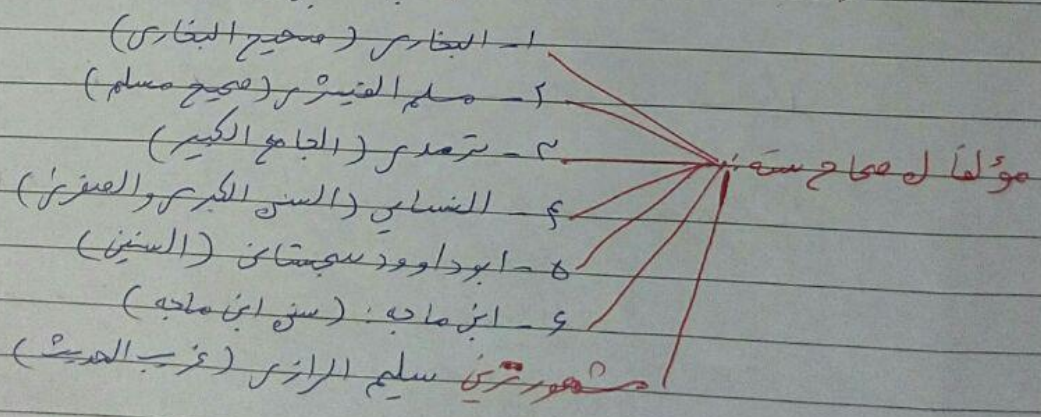 ۱- البخاری (صحیح البخاری)
۲- مسلم القیشری (صحیح مسلم)
مؤلفان صحاح سته:
۳- ترمذی (الجامع الکبیر)
۴- النسایی (السنن الکبری والصغری)
۵- ابوداوود سجستانی (السنین)
۶- ابن ماجه: (سنن ابن ماجه)
مشهورترین سلیم الرازی (غرب الحدیث)